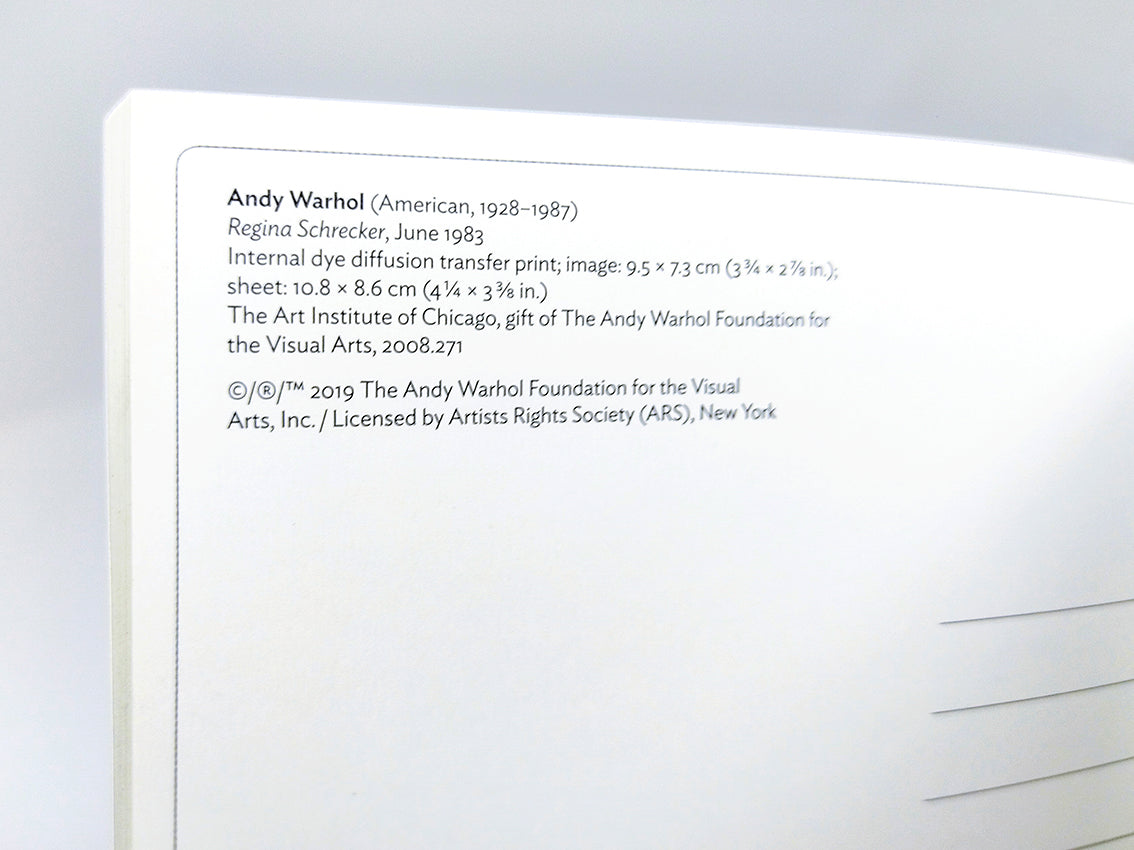 Andy Warhol (American, 1928–1987)
Regina Schrecker, June 1983
Internal dye diffusion transfer print; image: 9.5 × 7.3 cm (3 ¾ × 2 ⅞ in.);
sheet: 10.8 × 8.6 cm (4 ¼ × 3 ⅜ in.)
The Art Institute of Chicago, gift of The Andy Warhol Foundation for
the Visual Arts, 2008.271
©/®/™ 2019 The Andy Warhol Foundation for the Visual
Arts, Inc. / Licensed by Artists Rights Society (ARS), New York